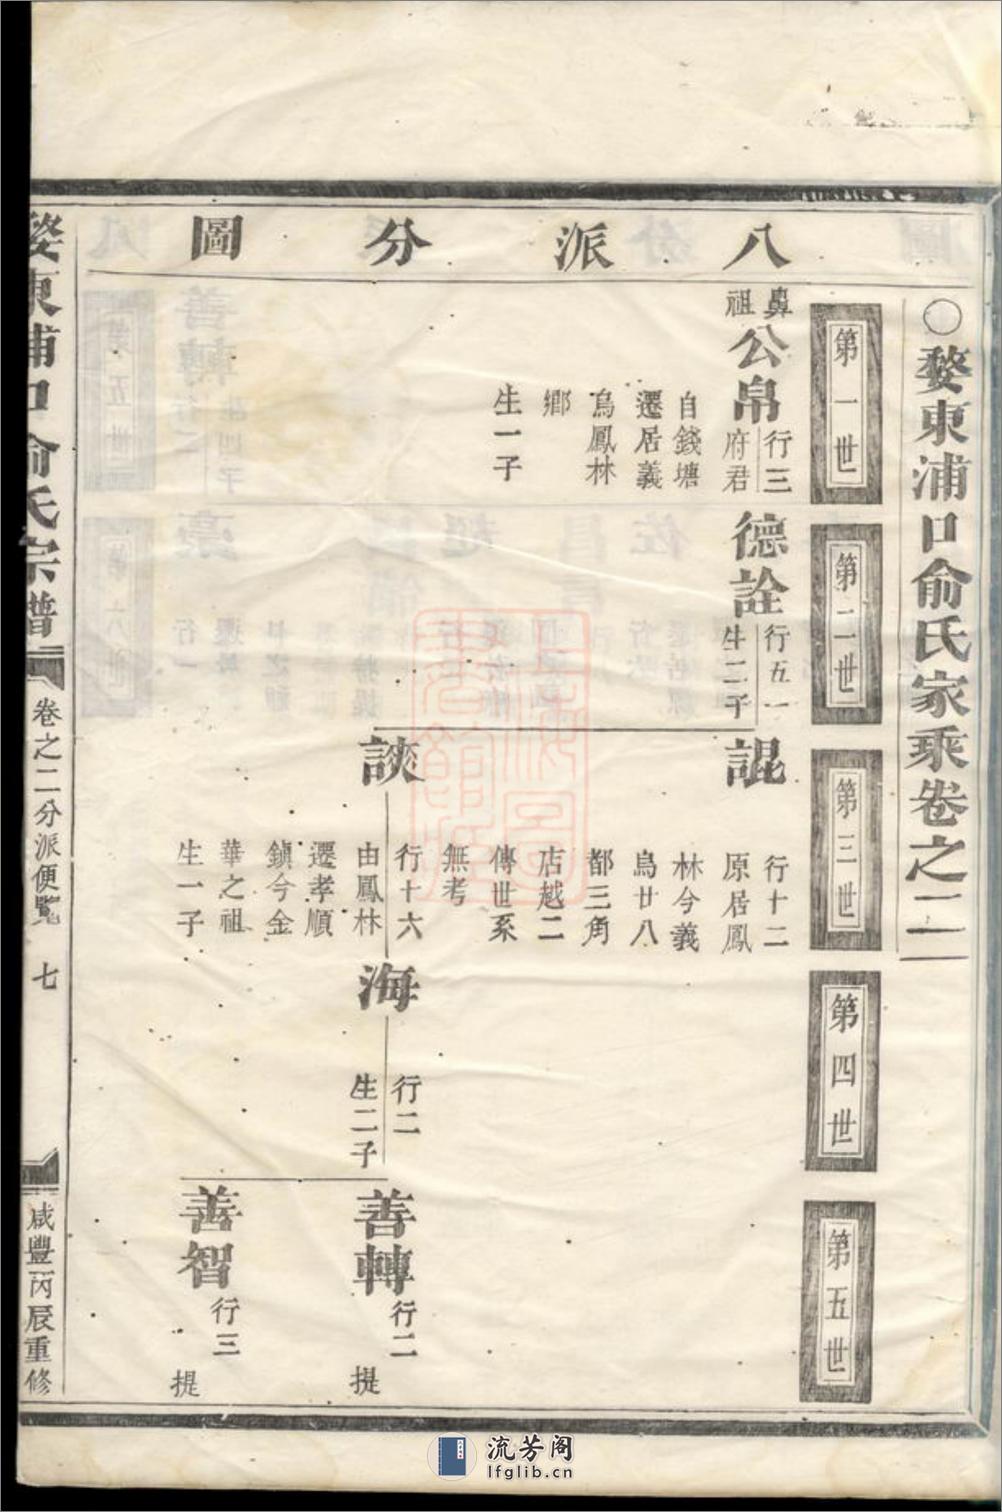 ○婺東浦口俞氏家乘卷之二
八派分圖
第一世
鼻祖
公帛
行三
府君
自錢塘
遷居義
烏鳳林
鄉
生一子
第二世
德詮
行五一
生二子
第三世
諟
行十二
原居鳳
林今義
烏廿八
都三角
店越二
傳世系
無考
諛
行十六
由鳳林
遷孝順
鎮今金
華之祖
生一子
第四世
海
行二
生二子
第五世
善轉
行二
提
善智
行三
提
婺東浦口俞氏宗譜
卷之二分派便覽
七
咸豐丙辰重修
流芳阁
lfglib.cn